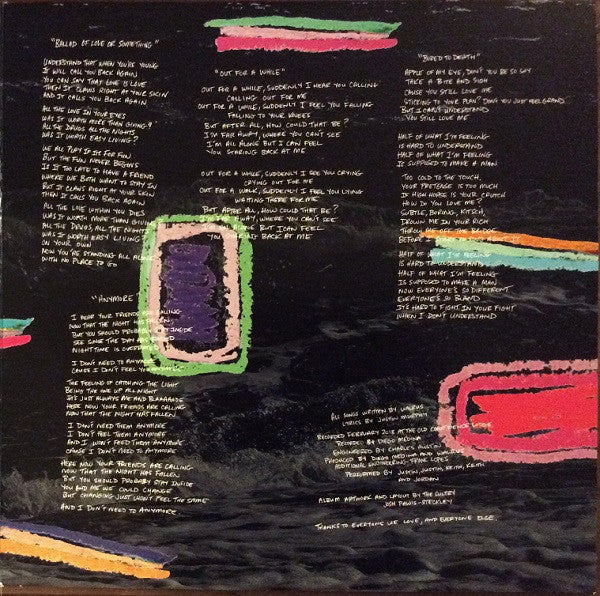 "BALLAD OF LOVE OR SOMETHING"
UNDERSTAND THAT WHEN YOU'RE YOUNG
IT WILL CALL YOU BACK AGAIN
YOU CAN SAY THAT LOVE IS LOVE
THEN IT CLAWS RIGHT AT YOUR SKIN
AND IT CALLS YOU BACK AGAIN
ALL THE LOVE IN YOUR EYES
WAS IT WORTH MORE THAN GIVING?
ALL THE DRUGS ALL THE NIGHTS
WAS IT WORTH EASY LIVING?
WE ALL PLAY IT'S FOR FUN
BUT THE FUN NEVER BEGINS
IS IT TOO LATE TO HAVE A FRIEND
WHERE WE BOTH WANT TO STAY IN
BUT IT CLAWS RIGHT AT YOUR SKIN
THEN IT CALLS YOU BACK AGAIN
ALL THE LOVE WITHIN YOU DIES
WAS IT WORTH MORE THAN GIVING
ALL THE DRUGS, ALL THE NIGHTS
WAS IT WORTH EASY LIVING
ON YOUR OWN
NOW YOU'RE STANDING ALL ALONE
WITH NO PLACE TO GO
"ANYMORE"
I HEAR YOUR FRIENDS ARE CALLING
NOW THAT THE NIGHT HAS FALLEN
BUT YOU SHOULD PROBABLY STAY INSIDE
SEE SINCE THE DAY HAS
NIGHTTIME IS OVERRATED
I DON'T NEED TO ANYMORE
CAUSE I DON'T FEEL YOU ANYMORE
THE FEELING OF CATCHING THE LIGHT
BEING THE ONE UP ALL NIGHT
IT'S JUST ALWAYS ME AND BLAAAAADE
HERE NOW YOUR FRIENDS ARE CALLING
NOW THAT THE NIGHT HAS FALLEN
I DON'T NEED THEM ANYMORE
I DON'T FEEL THEM ANYMORE
AND I WON'T FEED THEM ANYMORE
CAUSE I DON'T NEED TO ANYMORE
HERE NOW YOUR FRIENDS ARE CALLING
NOW THAT THE NIGHT HAS FALLEN
BUT YOU SHOULD PROBABLY STAY INSIDE
YOU AND ME WE COULD CHANGE
BUT CHANGING JUST WON'T FEEL THE SAME
AND I DON'T NEED TO ANYMORE
"OUT FOR A WHILE"
OUT FOR A WHILE, SUDDENLY I HEAR YOU CALLING
CALLING OUT FOR ME
OUT FOR A WHILE, SUDDENLY I FEEL YOU FALLING
FALLING TO YOUR KNEES
BUT AFTER ALL, HOW COULD THAT BE?
I'M FAR AWAY, WHERE YOU CAN'T SEE
I'M ALL ALONE BUT I CAN FEEL
YOU STARING BACK AT ME
OUT FOR A WHILE, SUDDENLY I SEE YOU CRYING
CRYING OUT FOR ME
OUT FOR A WHILE, SUDDENLY I FEEL YOU LYING
WAITING THERE FOR ME
BUT AFTER ALL, HOW COULD THAT BE?
I'M FAR AWAY, WHERE YOU CAN'T SEE
I'M ALL ALONE BUT I CAN FEEL
YOU STARING BACK AT ME
"BORED TO DEATH"
APPLE OF MY EYE, DON'T YOU BE SO SAY
TAKE A BITE AND SIGH
CAUSE YOU STILL LOVE ME
STICKING TO YOUR PLAN? DON'T YOU JUST FEEL GRAND
BUT I CAN'T UNDERSTAND
YOU STILL LOVE ME
HALF OF WHAT I'M FEELING
IS HARD TO UNDERSTAND
HALF OF WHAT I'M FEELING
IS SUPPOSED TO MAKE A MAN
TOO COLD TO THE TOUCH,
YOUR PRETENSE IS TOO MUCH
IS HIGH HORSE IS YOUR CRUTCH
HOW DO YOU LOVE ME?
SUBTLE, BORING, KITSCH,
DROWN ME IN YOUR RICH
THROW ME OFF THE BRIDGE
BEFORE I
HALF OF WHAT I'M FEELING
IS HARD TO UNDERSTAND
HALF OF WHAT I'M FEELING
IS SUPPOSED TO MAKE A MAN
NOW EVERYONE'S SO DIFFERENT
EVERYONE'S SO BLAND
IT'S HARD TO FIGHT IN YOUR FIGHT
WHEN I DON'T UNDERSTAND
ALL SONGS WRITTEN BY WALRUS
LYRICS BY JUSTIN MURPHY
RECORDED FEBRUARY 2015 AT THE OLD CONFIDENCE LODGE
RECORDED BY DIEGO MEDINA
ENGINEERED BY CHARLES AUSTIN
PRODUCED BY DIEGO MEDINA AND WALRUS
ADDITIONAL ENGINEERING FRANK LOPES
PERFORMED BY JUSTIN, JUSTIN, KEITH, KEITH
AND JORDAN
ALBUM ARTWORK AND LAYOUT BY THE SULTRY
JOSH PAVIS-STECKLEY
THANKS TO EVERYONE WE LOVE, AND EVERYONE ELSE.